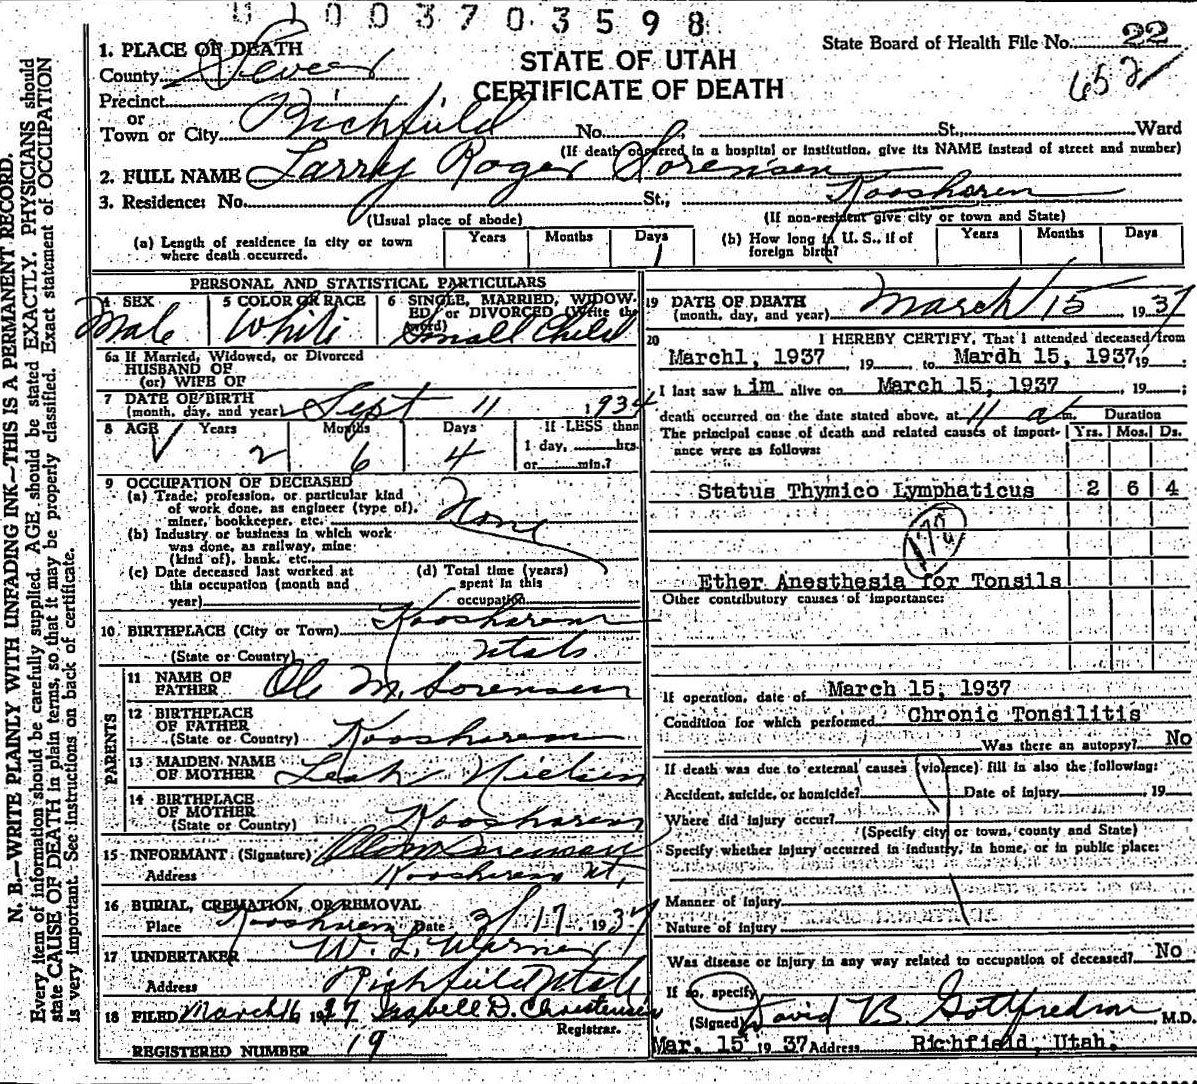 0 1 0 0 3 7 0 3 5 9 8
State Board of Health File No. 22
652
STATE OF UTAH
CERTIFICATE OF DEATH
1. PLACE OF DEATH
County Sevier
Precinct
or
Town or City Richfield No. St., Ward
(If death occurred in a hospital or institution, give its NAME instead of street and number)
2. FULL NAME Larry Roger Sorensen
3. Residence: No. St., Koosharem
(Usual place of abode) (If non-resident give city or town and State)
(a) Length of residence in city or town where death occurred. Years Months Days 1
(b) How long in U. S., if of foreign birth? Years Months Days
N. B.—WRITE PLAINLY WITH UNFADING INK—THIS IS A PERMANENT RECORD.
Every item of information should be carefully supplied. AGE should be stated EXACTLY. PHYSICIANS should
state CAUSE OF DEATH in plain terms, so that it may be properly classified. Exact statement of OCCUPATION
is very important. See instructions on back of certificate.
PERSONAL AND STATISTICAL PARTICULARS
4 SEX Male
5 COLOR OR RACE White
6 SINGLE, MARRIED, WIDOWED, or DIVORCED (Write the word) Small Child
6a If Married, Widowed, or Divorced
HUSBAND OF
(or) WIFE OF
7 DATE OF BIRTH
(month, day, and year) Sept 11 1934
8 AGE Years 2 Months 6 Days 4
If LESS than
1 day, hrs.
or min.?
9 OCCUPATION OF DECEASED
(a) Trade, profession, or particular kind
of work done, as engineer (type of),
miner, bookkeeper, etc. None
(b) Industry or business in which work
was done, as railway, mine
(kind of), bank, etc.
(c) Date deceased last worked at
this occupation (month and
year)
(d) Total time (years)
spent in this
occupation
10 BIRTHPLACE (City or Town) Koosharem
(State or Country) Utah
PARENTS
11 NAME OF
FATHER Ole M. Sorensen
12 BIRTHPLACE
OF FATHER
(State or Country) Koosharem
13 MAIDEN NAME
OF MOTHER Leah Nielsen
14 BIRTHPLACE
OF MOTHER
(State or Country) Koosharem
15 INFORMANT (Signature) Ole M Sorensen
Address Koosharem Ut.
16 BURIAL, CREMATION, OR REMOVAL
Place Koosharem Date 3/17 1937
17 UNDERTAKER W. L. Warner
Address Richfield Utah
18 FILED March 16 1937 Isabell D. Christensen
Registrar.
REGISTERED NUMBER 19
19 DATE OF DEATH
(month, day, and year) March 15 1937
20 I HEREBY CERTIFY, That I attended deceased from
March1, 1937, 19 to Mardh 15, 1937, 19 ;
I last saw h im alive on March 15, 1937 19 ;
death occurred on the date stated above, at 11 a m. Duration
The principal cause of death and related causes of importance were as follows: Yrs. Mos. Ds.
Status Thymico Lymphaticus 2 6 4
178
Ether Anesthesia for Tonsils
Other contributory causes of importance:
If operation, date of March 15, 1937
Condition for which performed Chronic Tonsilitis
Was there an autopsy? No
If death was due to external causes (violence) fill in also the following:
Accident, suicide, or homicide? Date of injury , 19
Where did injury occur?
(Specify city or town, county and State)
Specify whether injury occurred in industry, in home, or in public place:
Manner of injury
Nature of injury
Was disease or injury in any way related to occupation of deceased? No
If so, specify
(Signed) David B. Gottfredson , M.D.
Mar. 15 19 37 Address Richfield, Utah.